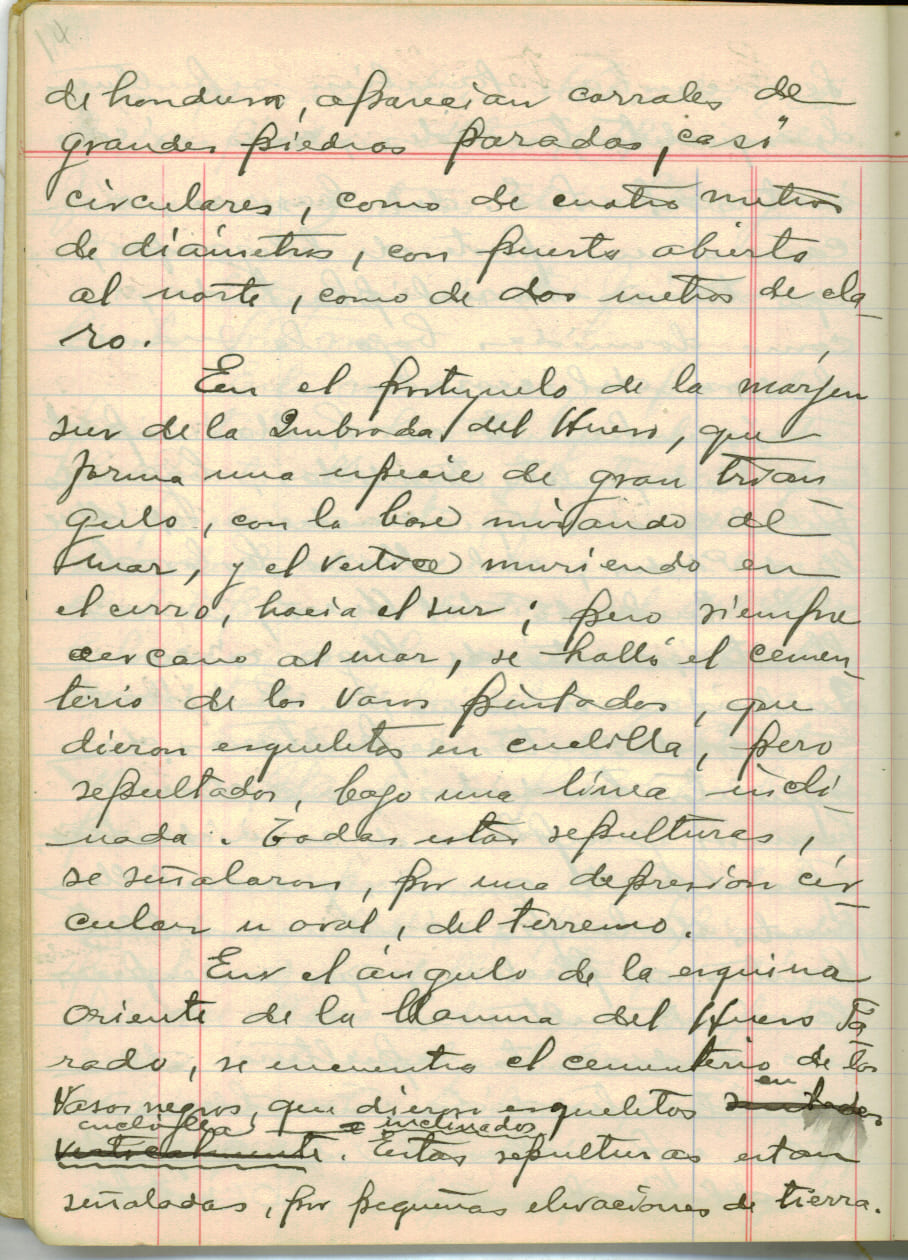 14
de hondura, aparecian corrales de
grandes piedras paradas, casi
circulares, como de cuatro metros
de diámetros, con puerta abierta
al norte, como de dos metros de cla-
ro.
En el portezuelo de la márjen
sur de la Quebrada del Hueso, que
forma una especie de gran trian-
gulo, con la base mirando al
mar, y el vertice muriendo en
el cerro, hacia el sur; pero siempre
cercano al mar, se halló el cemen-
terio de los vasos pintados, que
dieron esqueletos en cuclilla, pero
sepultados, bajo una línea incli-
nada. Todas estas sepulturas,
se señalaron, por una depresion cir-
cular u oval, del terreno.
En el ángulo de la esquina
oriente de la llanura del Hueso Pa-
rado, se encuentra el cementerio de los
en
vasos negros, que dieron esqueletos sentados
cuclilla inclinados
verticalmente. Estas sepulturas estan
señaladas, por pequeñas elevaciones de tierra.